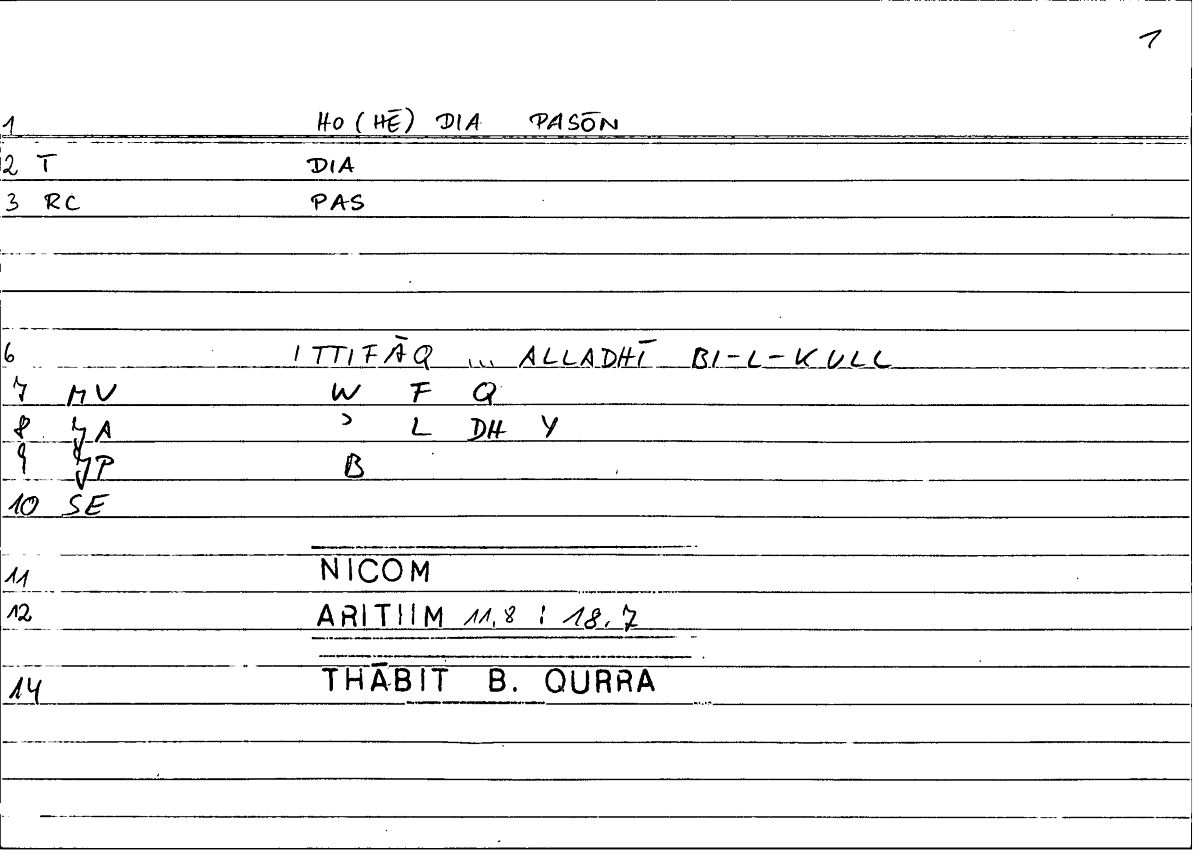 1
1 HO (HĒ) DIA PASŌN
2 T DIA
3 RC PAS
6 ITTIFĀQ ... ALLADHĪ BI-L-KULL
7 MV W F Q
8 JA ʾ L DH Y
9 JP B
10 SE
11 NICOM
12 ARITIIM 11,8 ; 18.7
14 THĀBIT B. QURRA